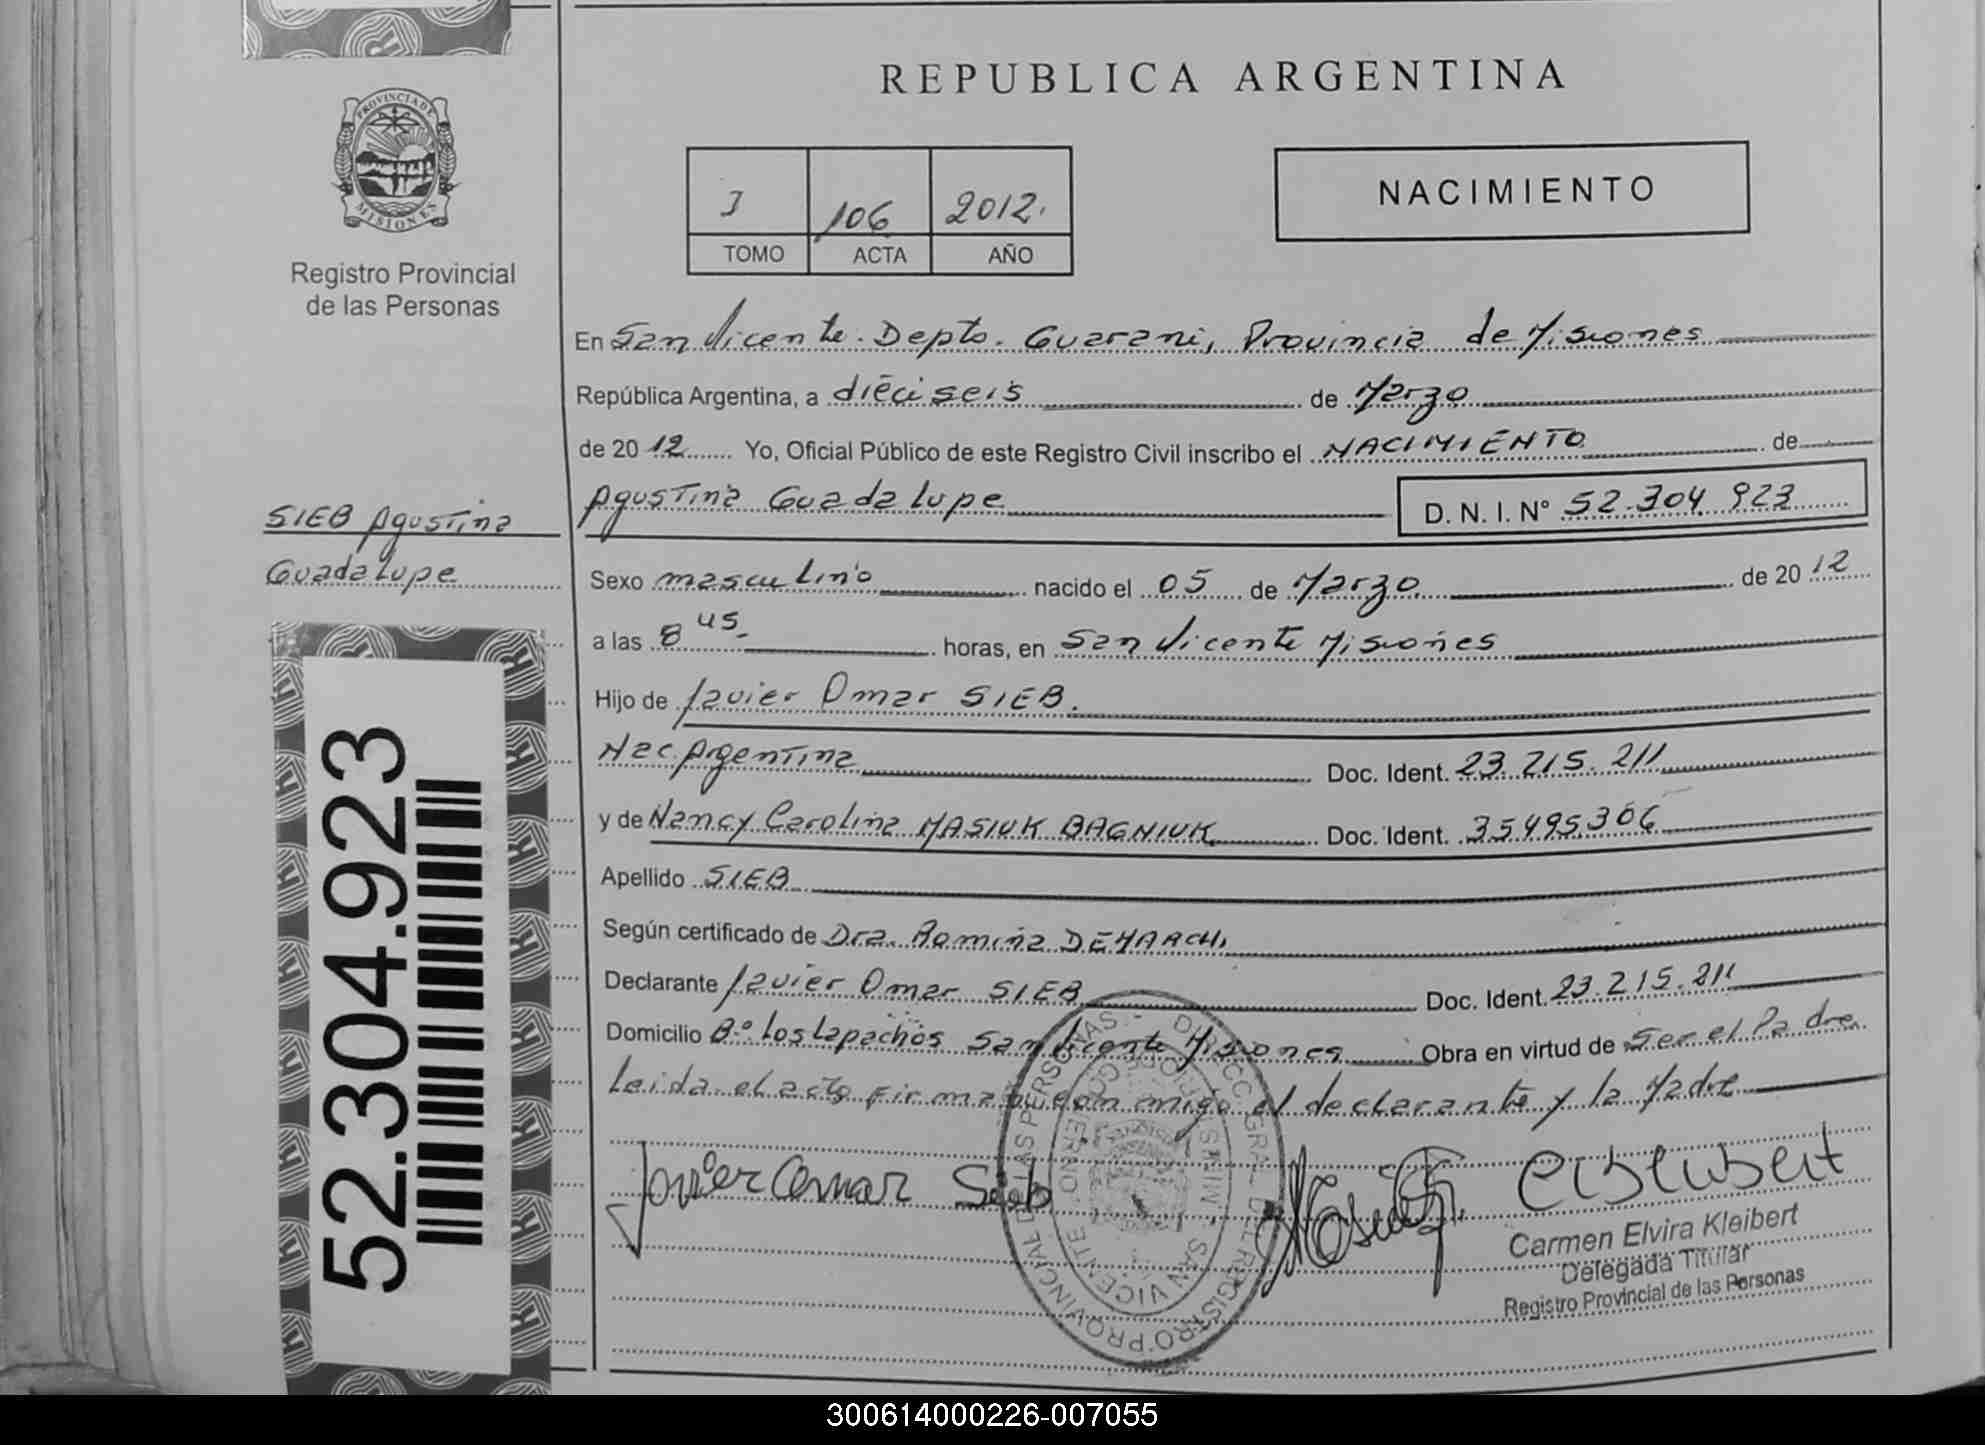 REPUBLICA ARGENTINA
PROVINCIA DE MISIONES
Registro Provincial
de las Personas
I 106 2012.
TOMO ACTA AÑO
NACIMIENTO
En San Vicente. Depto. Guarani, Provincia de Misiones
República Argentina, a dieciseis de Marzo
de 2012 Yo, Oficial Público de este Registro Civil inscribo el NACIMIENTO de
Agustina Guadalupe D. N. I. Nº 52.304.923
SIEB Agustina
Guadalupe
Sexo masculino nacido el 05 de Marzo de 2012
a las 8 45. horas, en San Vicente Misiones
Hijo de Javier Omar SIEB.
Nac. Argentina Doc. Ident. 23.215.211
y de Nancy Carolina MASIUK BAGNIUK Doc. Ident. 35495306
Apellido SIEB
Según certificado de Dra. Romina DEMARCHI
Declarante Javier Omar SIEB Doc. Ident. 23.215.211
Domicilio Bº. Los Lapachos San Vicente Misiones Obra en virtud de Ser el Padre
Leida el acto firman con migo el declarante y la Madre
Javier Omar Sieb
Carmen Elvira Kleibert
Delegada Titular
Registro Provincial de las Personas
DIRECC. GRAL. DEL REGISTRO PROVINCIAL DE LAS PERSONAS.-
SAN VICENTE
52.304.923
300614000226-007055